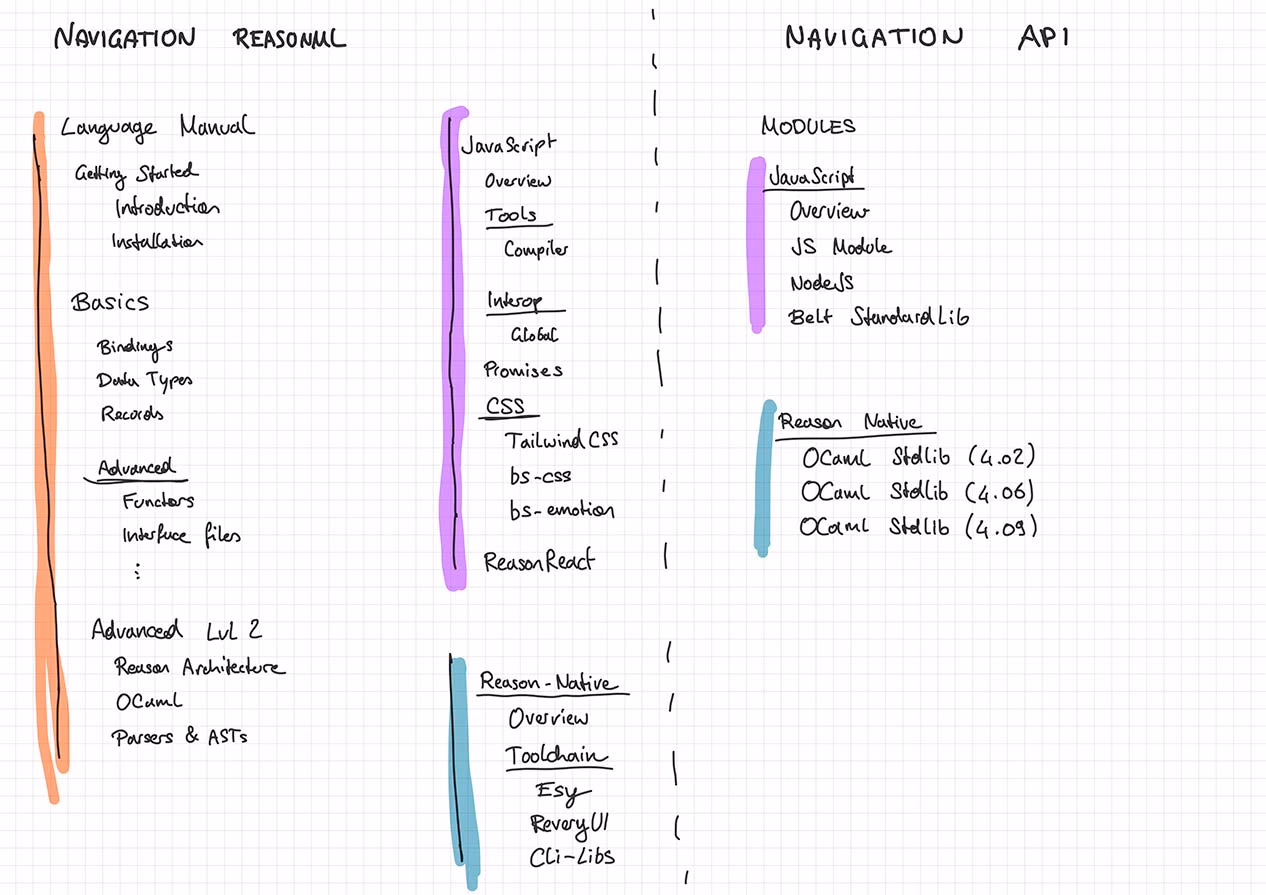 NAVIGATION REASONML
Language Manual
Getting Started
Introduction
Installation
Basics
Bindings
Data Types
Records
Advanced
Functors
Interface files
⋮
Advanced Lvl 2
Reason Architecture
OCaml
Parsers & ASTs
JavaScript
Overview
Tools
Compiler
Interop
Global
Promises
CSS
Tailwind CSS
bs-css
bs-emotion
ReasonReact
Reason-Native
Overview
Toolchain
Esy
ReveryUI
Cli-Libs
NAVIGATION API
MODULES
JavaScript
Overview
JS Module
NodeJS
Belt StandardLib
Reason Native
OCaml Stdlib (4.02)
OCaml Stdlib (4.06)
OCaml Stdlib (4.09)